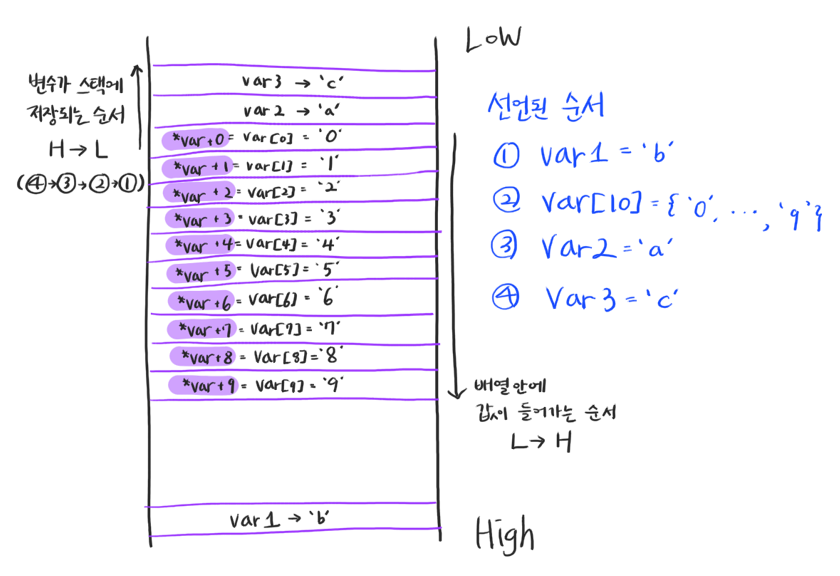 LOW
변수가 스택에
저장되는 순서
H → L
(④→③→②→①)
var3 → 'c'
var2 → 'a'
*var+0 = var[0] = '0'
*var+1 = var[1] = '1'
*var+2 = var[2] = '2'
*var+3 = var[3] = '3'
*var+4 = var[4] = '4'
*var+5 = var[5] = '5'
*var+6 = var[6] = '6'
*var+7 = var[7] = '7'
*var+8 = var[8] = '8'
*var+9 = var[9] = '9'
var1 → 'b'
선언된 순서
① var1 = 'b'
② var[10] = {'0', ..., '9'}
③ var2 = 'a'
④ var3 = 'c'
배열안에
값이 들어가는 순서
L → H
High